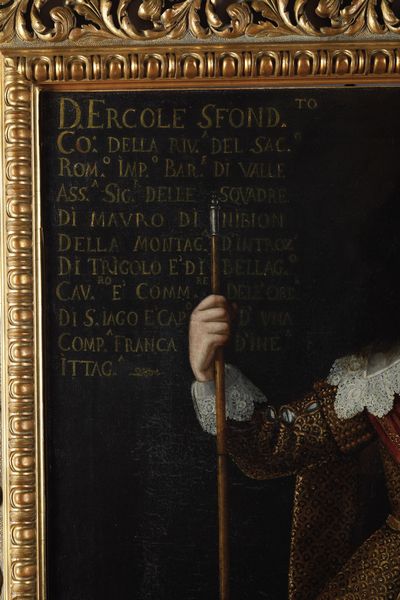 D. ERCOLE SFOND.TO
CO: DELLA RIV.A DEL SAC.O
ROM.O IMP.O BAR.E DI VALLE
ASS.A SIG.R DELLE SQVADRE
DI MAVRO DI NIBION
DELLA MONTAG.A D'INTROZ
DI TRIGOLO E' DI BELLAG.O
CAV.RO E' COMM.RE DELL'ORD.
DI S. IAGO E' CAP.O D' VNA
COMP.A FRANCA D' INF.
ITTAG.A